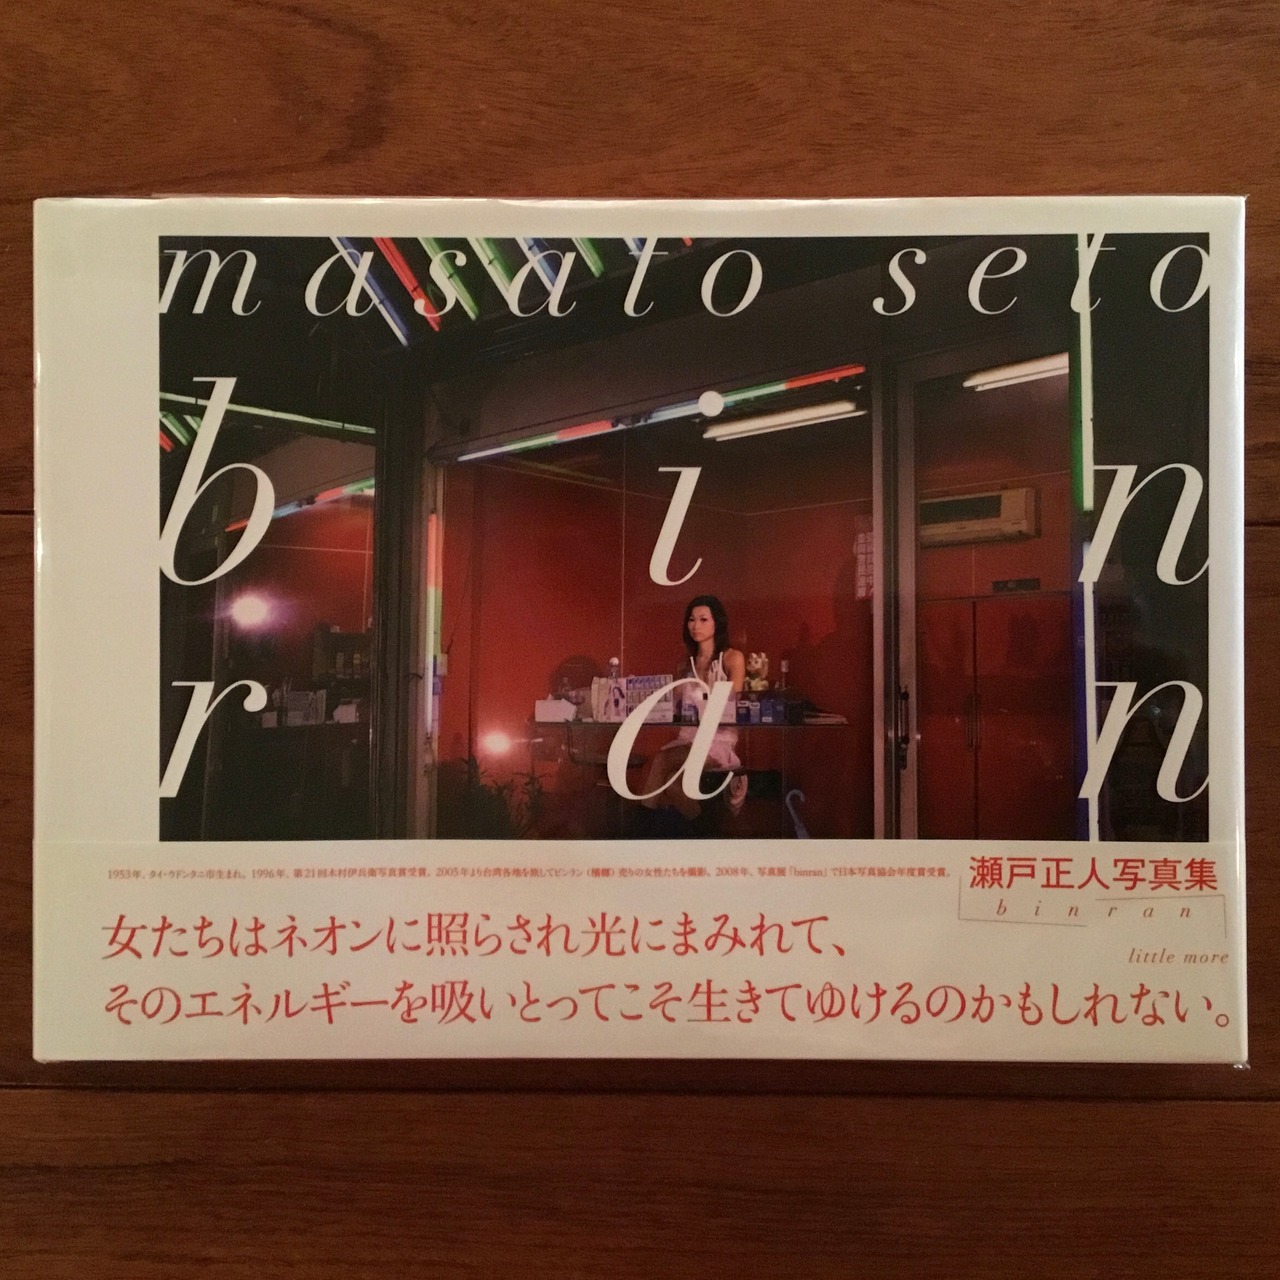 masato seto
bin
ran
1953年、タイ・ウドンタニ市生まれ。1996年、第21回木村伊兵衛写真賞受賞。2005年より台湾各地を旅してビンラン（檳榔）売りの女性たちを撮影。2008年、写真展「binran」で日本写真協会年度賞受賞。
瀬戸正人写真集
binran
little more
女たちはネオンに照らされ光にまみれて、
そのエネルギーを吸いとってこそ生きてゆけるのかもしれない。